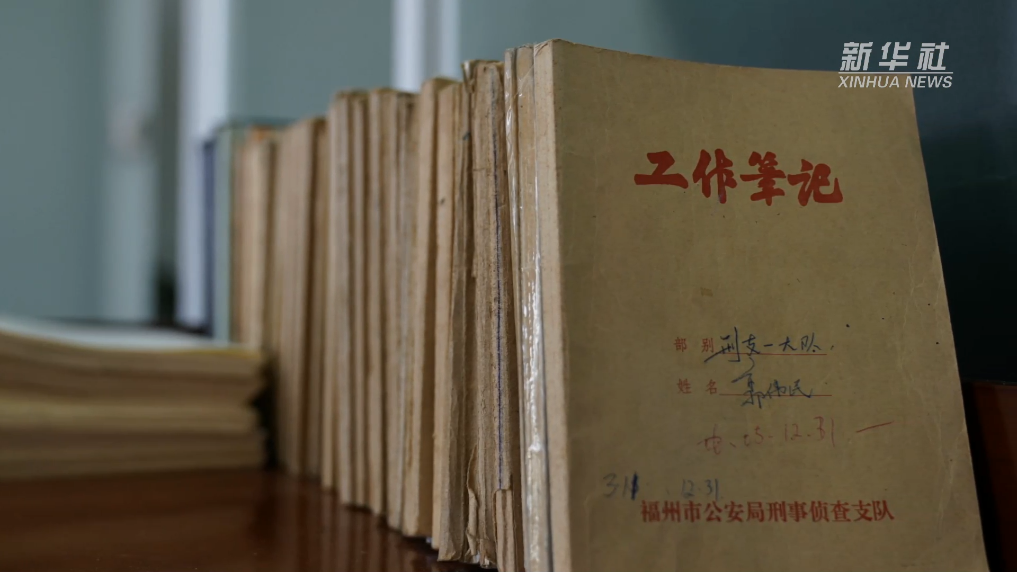 新华社
XINHUA NEWS
工作筆记
部别 刑支一大队
姓名 郭伟民
12.31
福州市公安局刑事侦查支队